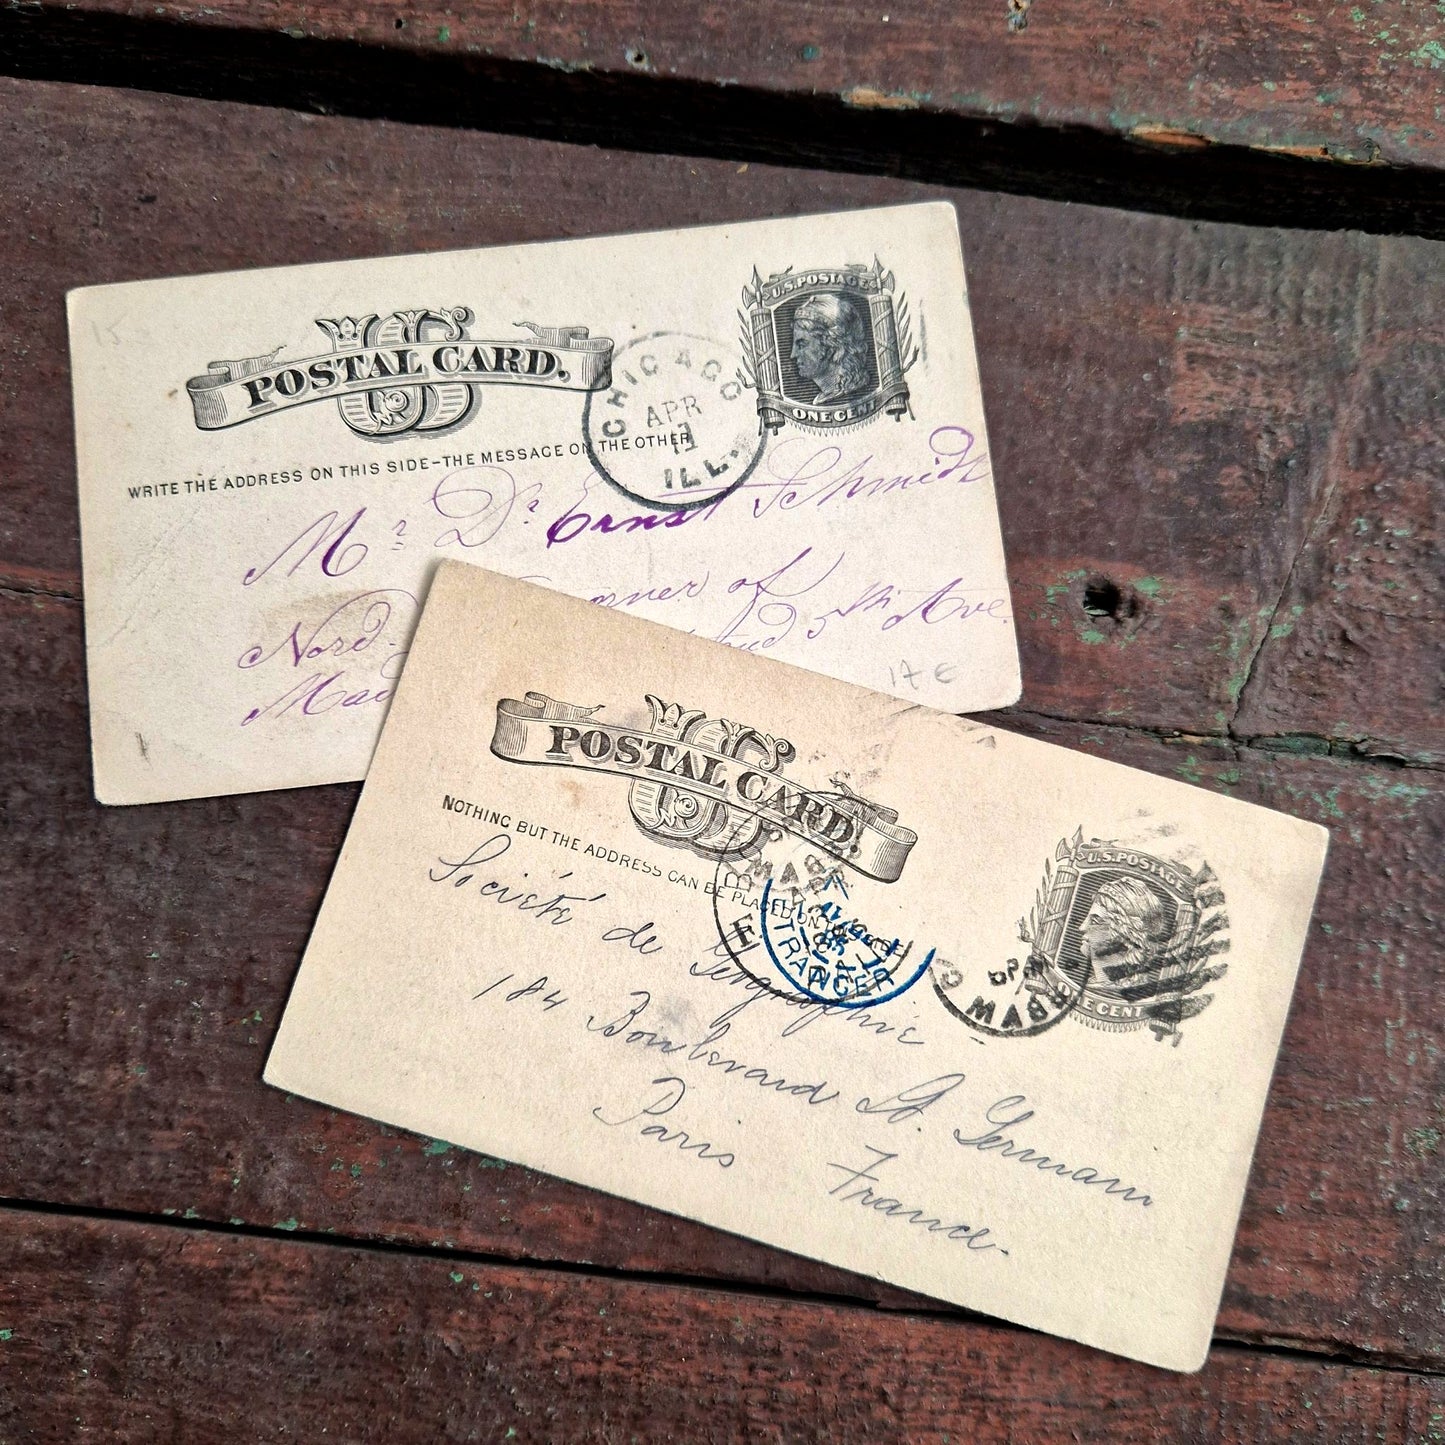 15
US
POSTAL CARD.
WRITE THE ADDRESS ON THIS SIDE-THE MESSAGE ON THE OTHER
CHICAGO
APR
11
ILL.
U.S. POSTAGE
ONE CENT
Mr. Dr. Ernst Schmidt
Nord- corner of
and 5th Ave.
17 €
US
POSTAL CARD.
NOTHING BUT THE ADDRESS CAN BE PLACED ON THIS SIDE
MASS.
ETRANGER
U.S. POSTAGE
ONE CENT
Société de Geographie
184 Boulevard St. Germain
Paris France.